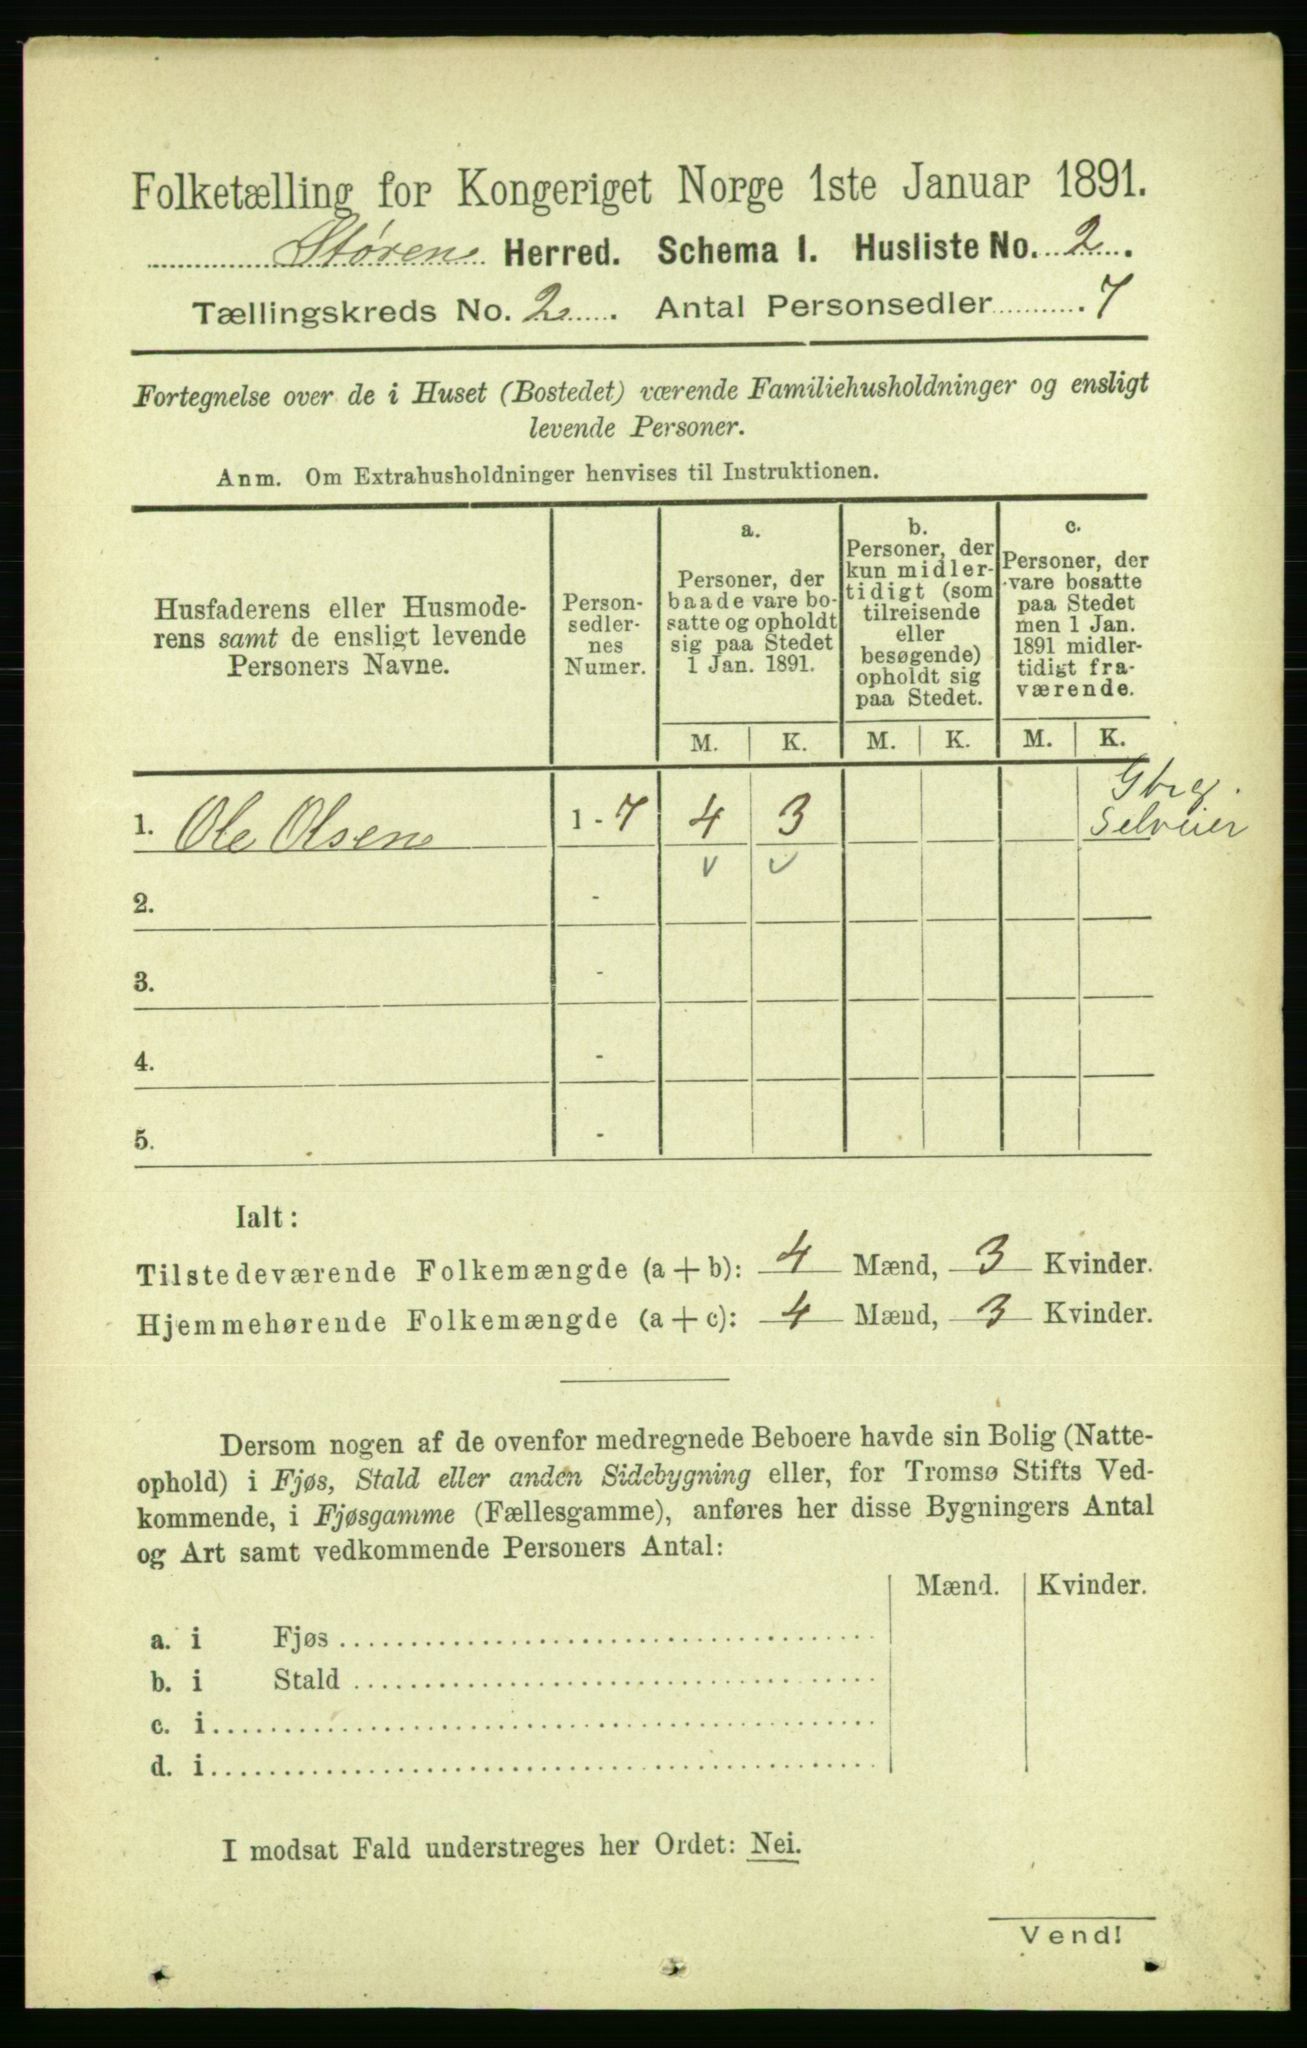 Folketælling for Kongeriget Norge 1ste Januar 1891.
Støren Herred. Schema I. Husliste No. 2.
Tællingskreds No. 2. Antal Personsedler 7
Fortegnelse over de i Huset (Bostedet) værende Familiehusholdninger og ensligt
levende Personer.
Anm. Om Extrahusholdninger henvises til Instruktionen.
Husfaderens eller Husmode-
rens samt de ensligt levende
Personers Navne.
Person-
sedler-
nes
Numer.
a.
Personer, der
baade vare bo-
satte og opholdt
sig paa Stedet
1 Jan. 1891.
b.
Personer, der
kun midler-
tidigt (som
tilreisende
eller
besøgende)
opholdt sig
paa Stedet.
c.
Personer, der
vare bosatte
paa Stedet
men 1 Jan.
1891 midler-
tidigt fra-
værende.
M. K. M. K. M. K.
1. Ole Olsen 1 - 7 4 3 Gbrg.
Selveier
2. -
3. -
4. -
5. -
Ialt:
Tilstedeværende Folkemængde (a + b): 4 Mænd, 3 Kvinder.
Hjemmehørende Folkemængde (a + c): 4 Mænd, 3 Kvinder.
Dersom nogen af de ovenfor medregnede Beboere havde sin Bolig (Natte-
ophold) i Fjøs, Stald eller anden Sidebygning eller, for Tromsø Stifts Ved-
kommende, i Fjøsgamme (Fællesgamme), anføres her disse Bygningers Antal
og Art samt vedkommende Personers Antal:
Mænd. Kvinder.
a. i Fjøs
b. i Stald
c. i
d. i
I modsat Fald understreges her Ordet: Nei.
Vend!